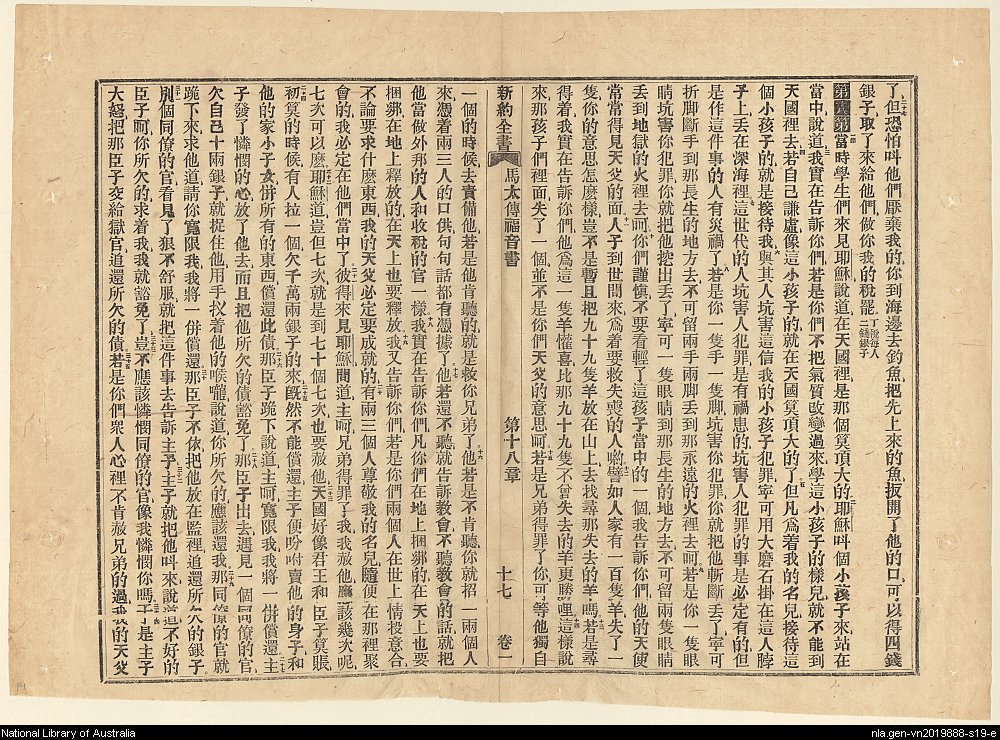 了但恐怕叫他們厭棄我的你到海邊去釣魚把先上來的魚扳開了他的口可以得四錢
銀子取了來給他們做你我的稅罷丁稅每人二錢銀子
當時學生們來見耶穌說道在天國裡是那個箅頂大的耶穌叫個小孩子來站在
當中說道我實在告訴你們若是你們不把氣質改變過來學這小孩子的樣兒就不能到
天國裡去若自己謙虛像這小孩子的就在天國箅頂大的了但凡爲着我的名兒接待這
個小孩子的就是接待我與其人坑害這信我的小孩子犯罪寧可用大磨石掛在這人脖
子上丢在深海裡這世代的人坑害人犯罪是有禍患的坑害人犯罪的事是必定有的但
是作這件事的人有災禍了若是你一隻手一隻脚坑害你犯罪你就把他斬斷丢了寧可
折脚斷手到那長生的地方去不可留兩手兩脚丢到那永遠的火裡去呵若是你一隻眼
睛坑害你犯罪你就把他挖出丢了寧可一隻眼睛到那長生的地方去不可留兩隻眼睛
丢到地獄的火裡去呵你們謹慎不要看輕了這孩子當中的一個我告訴你們他的天使
常常得見天父的面人子到世間來爲着要救失喪的人喲譬如人家有一百隻羊失了一
隻你的意思怎麽樣豈不是暫且把九十九隻羊放在山上去找尋那失去的羊嗎若是尋
得着我實在告訴你們他爲這一隻羊懽喜比那九十九隻不曾失去的羊更勝哩這樣說
來那孩子們裡面失了一個並不是你們天父的意思呵若是兄弟得罪了你可等他獨自
新約全書 馬太傳福音書 第十八章 十七 卷一
一個的時候去責備他若是他肯聽的就是救你兄弟了他若是不肯聽你就招一兩個人
來憑着兩三人的口供句句話都有憑據了他若還不聽就告訴教會不聽教會的話就把
他當做外邦的人和收稅的官一樣我實在告訴你們凡你們在地上捆綁的在天上也要
捆綁在地上釋放的在天上也要釋放我又告訴你們若是你們兩個人在世上情投意合
不論要求什麽東西我的天父必定要成就的有兩三個人尊敬我的名兒隨便在那裡聚
會的我必定在他們當中了彼得來見耶穌問道主呵兄弟得罪了我我赦他應該幾次呢
七次可以麽耶穌道豈但七次就是到七十個七次也要赦他天國好像君王和臣子算賬
初算的時候有人拉一個欠千萬兩銀子的來既然不能償還主子便吩咐賣他的身子和
他的家小子女併所有的東西償還此債那臣子跪下說道主呵寬限我我將一併償還主
子發了憐憫的心放了他去而且把他所欠的債豁免了那臣子出去遇見一個同僚的官
欠自己十兩銀子就捉住他用手扠着他的喉嚨說道你所欠的應該還我那同僚的官就
跪下來求他道請你寬限我我將一併償還那臣子不依把他放在監裡追還所欠的銀子
別個同僚的官看見了狠不舒服就把這件事去告訴主子主子就把他叫來說道不好的
臣子呵你所欠的求着我我就豁免了豈不應該憐憫同僚的官像我憐憫你嗎于是主子
大怒把那臣子交給獄官追還所欠的債若是你們衆人心裡不肯赦兄弟的過我的天父
National Library of Australia
nla.gen-vn2019888-s19-e